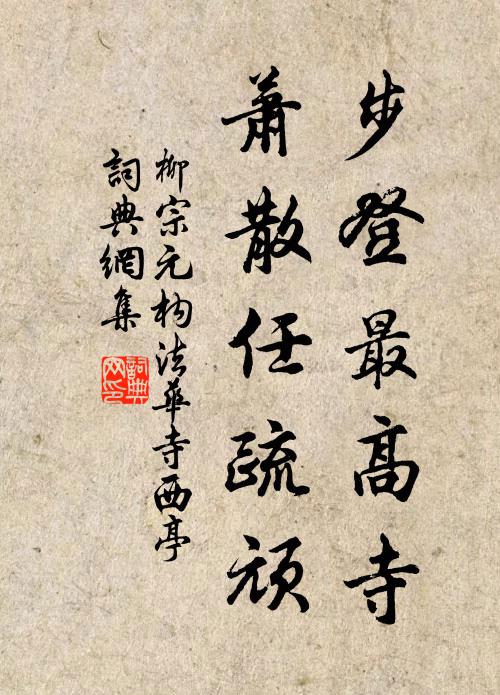 步登最高寺
蕭散任疏頑
柳宗元构法華寺西亭
詞典網集
詞典
网印